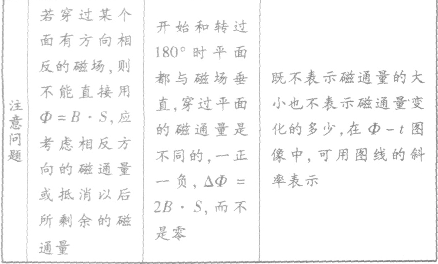 注意问题
若穿过某个
面有方向相
反的磁场,则
不能直接用
Φ=B·S,应
考虑相反方
向的磁通量
或抵消以后
所剩余的磁
通量
开始和转过
180°时平面
都与磁场垂
直,穿过平面
的磁通量是
不同的,一正
一负,ΔΦ=
2B·S,而不
是零
既不表示磁通量的大
小也不表示磁通量变
化的多少,在Φ-t图
像中,可用图线的斜
率表示